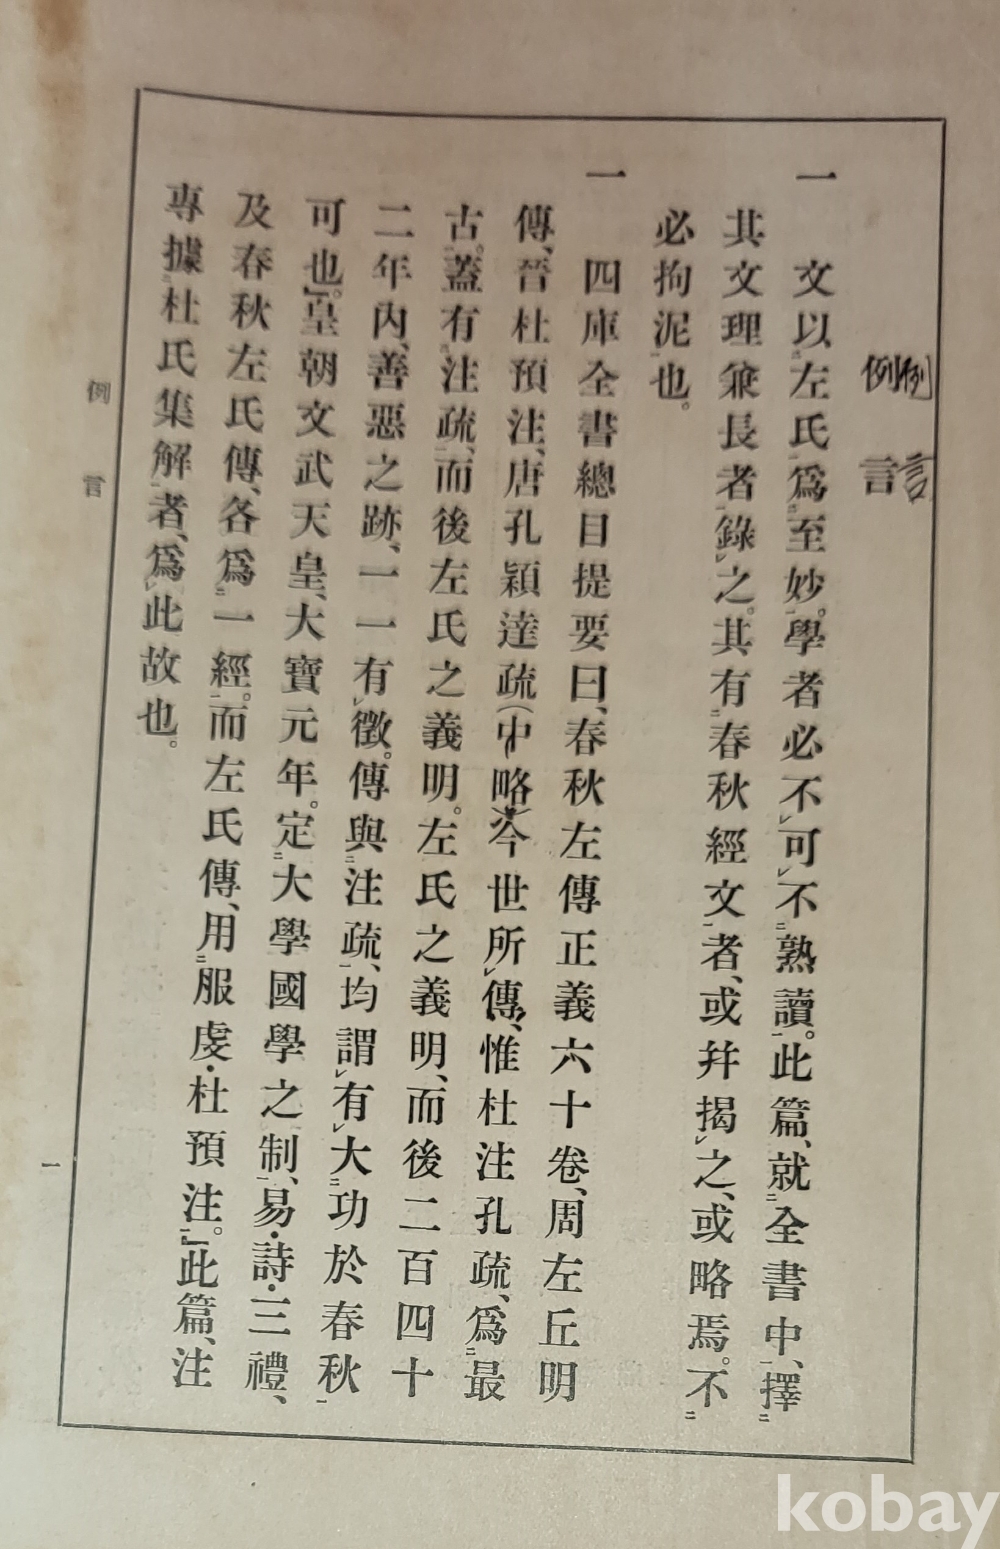 例言
例言
一 文以左氏爲至妙。學者必不可不熟讀。此篇、就全書中、擇
其文理兼長者錄之。其有春秋經文者、或幷揭之、或略焉。不
必拘泥也。
一 四庫全書總目提要曰、春秋左傳正義六十卷、周左丘明
傳、晉杜預注、唐孔穎達疏(中略)今世所傳、惟杜注孔疏、爲最
古。蓋有注疏、而後左氏之義明。左氏之義明、而後二百四十
二年內、善惡之跡、一一有徵。傳與注疏、均謂有大功於春秋
可也。」皇朝文武天皇、大寶元年。定大學國學之制、易・詩・三禮、
及春秋左氏傳、各爲一經。而左氏傳、用服虔・杜預注。」此篇、注
專據杜氏集解者、爲此故也。
例言
一
kobay